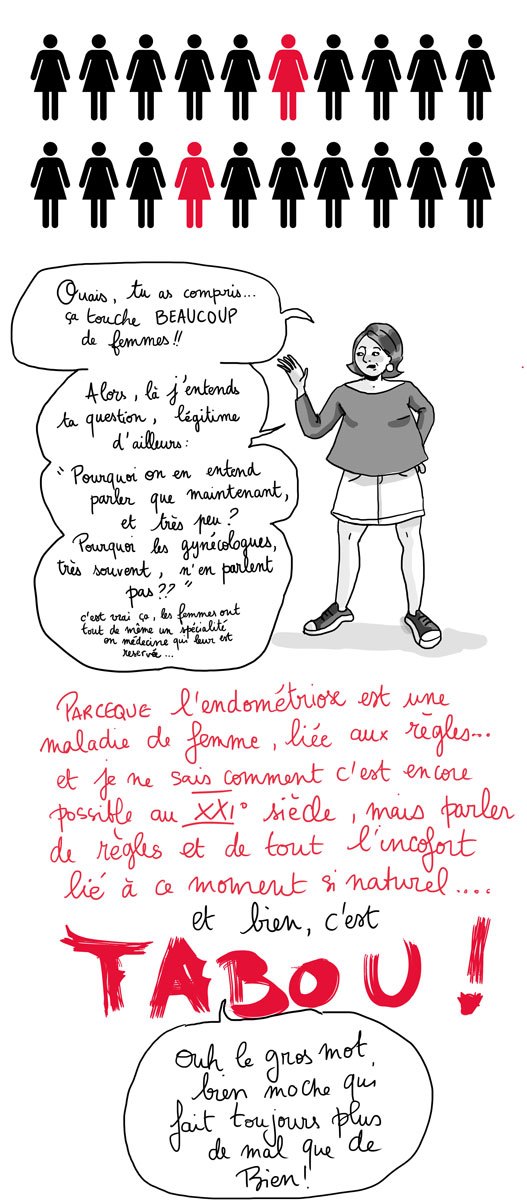 Ouais, tu as compris...
ça touche BEAUCOUP
de femmes!!
Alors, là j'entends
ta question, légitime
d'ailleurs:
"Pourquoi on en entend
parler que maintenant,
et très peu?
Pourquoi les gynécologues,
très souvent, n'en parlent
pas??"
c'est vrai ça, les femmes ont
tout de même un spécialité
en médecine qui leur est
reservée...
PARCEQUE l'endométriose est une
maladie de femme, liée aux règles...
et je ne sais comment c'est encore
possible au XXI° siècle, mais parler
de règles et de tout l'incofort
lié à ce moment si naturel....
et bien, c'est
TABOU!
Ouh le gros mot
bien moche qui
fait toujours plus
de mal que de
Bien!